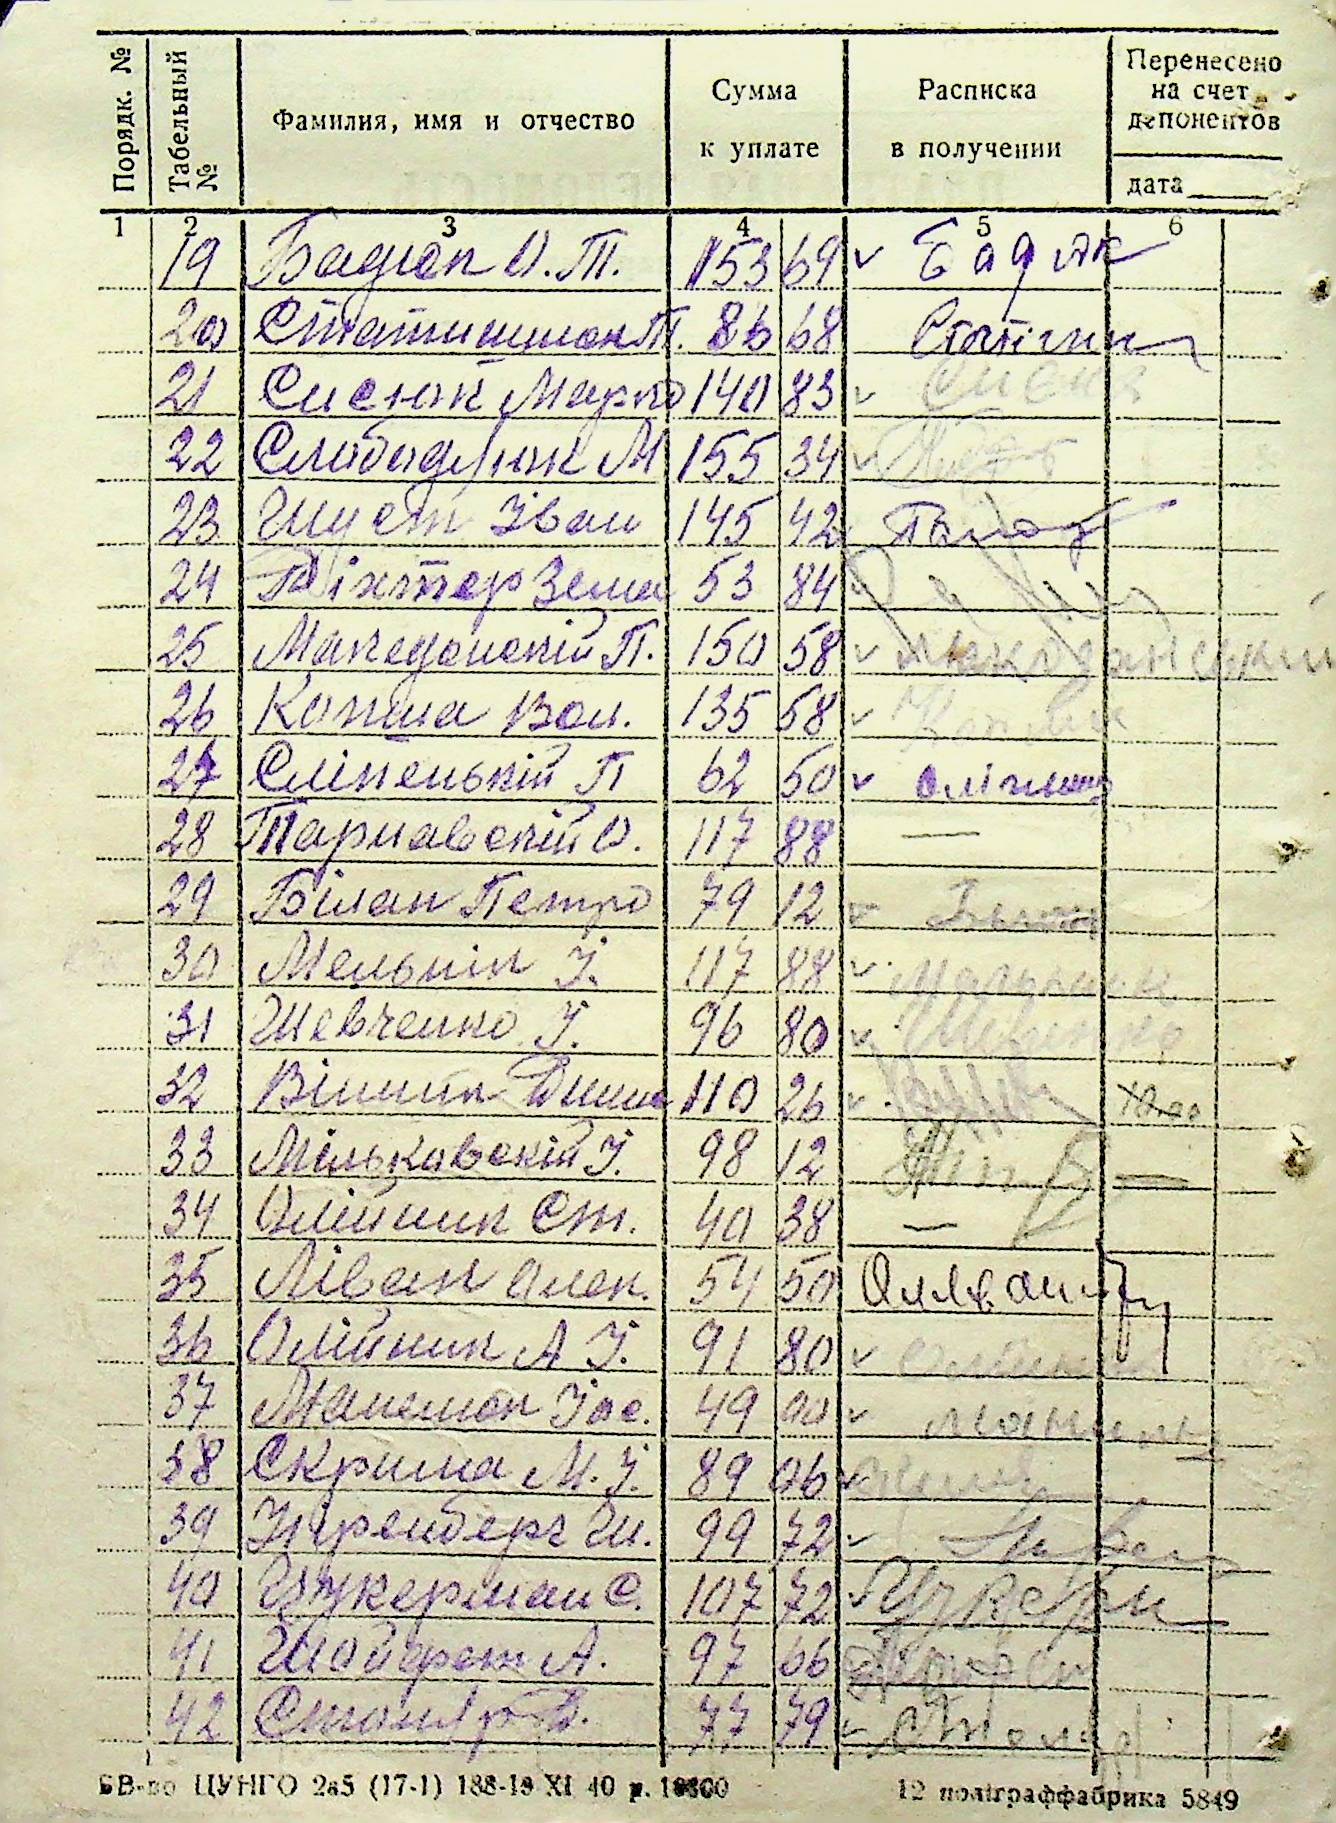 Порядк. №
Табельный №
Фамилия, имя и отчество
Сумма к уплате
Расписка в получении
Перенесено на счет депонентов
дата
1 2 3 4 5 6
19 Бадюк О. Т. 153 69 Бадюк
20 Статишшок Т. 86 68
21 Сисюк Марко 140 83
22 Слободянюк М 155 34
23 Шуст Іван 145 42
24 Ріхтер Зельм 53 84
25 Македонскій П. 150 58 Македонський
26 Копша Вол. 135 58
27 Сліпенькій П 62 50
28 Тарнавскій О. 117 88 —
29 Білан Петро 79 12 Билан
30 Мельнік І. 117 88 Мельник
31 Шевченко І. 96 80 Шевченко
32 110 26
33 Мільковскій І. 98 12 —
34 Олійник Ст. 40 38 —
35 Ліван Олек. 54 50
36 Олійник А І. 91 80 Олійник
37 Манешок Іос. 49 00
38 Скрипа М. І. 89 06
39 Ніренберг Ш. 99 72
40 Цукерман С. 107 72
41 Шойфет А. 97 66
42 Столяр В. 77 79 Столяр
БВ-во ЦУНГО 2а5 (17-1) 188-19 XI 40 р. 10300
12 поліграффабрика 5849